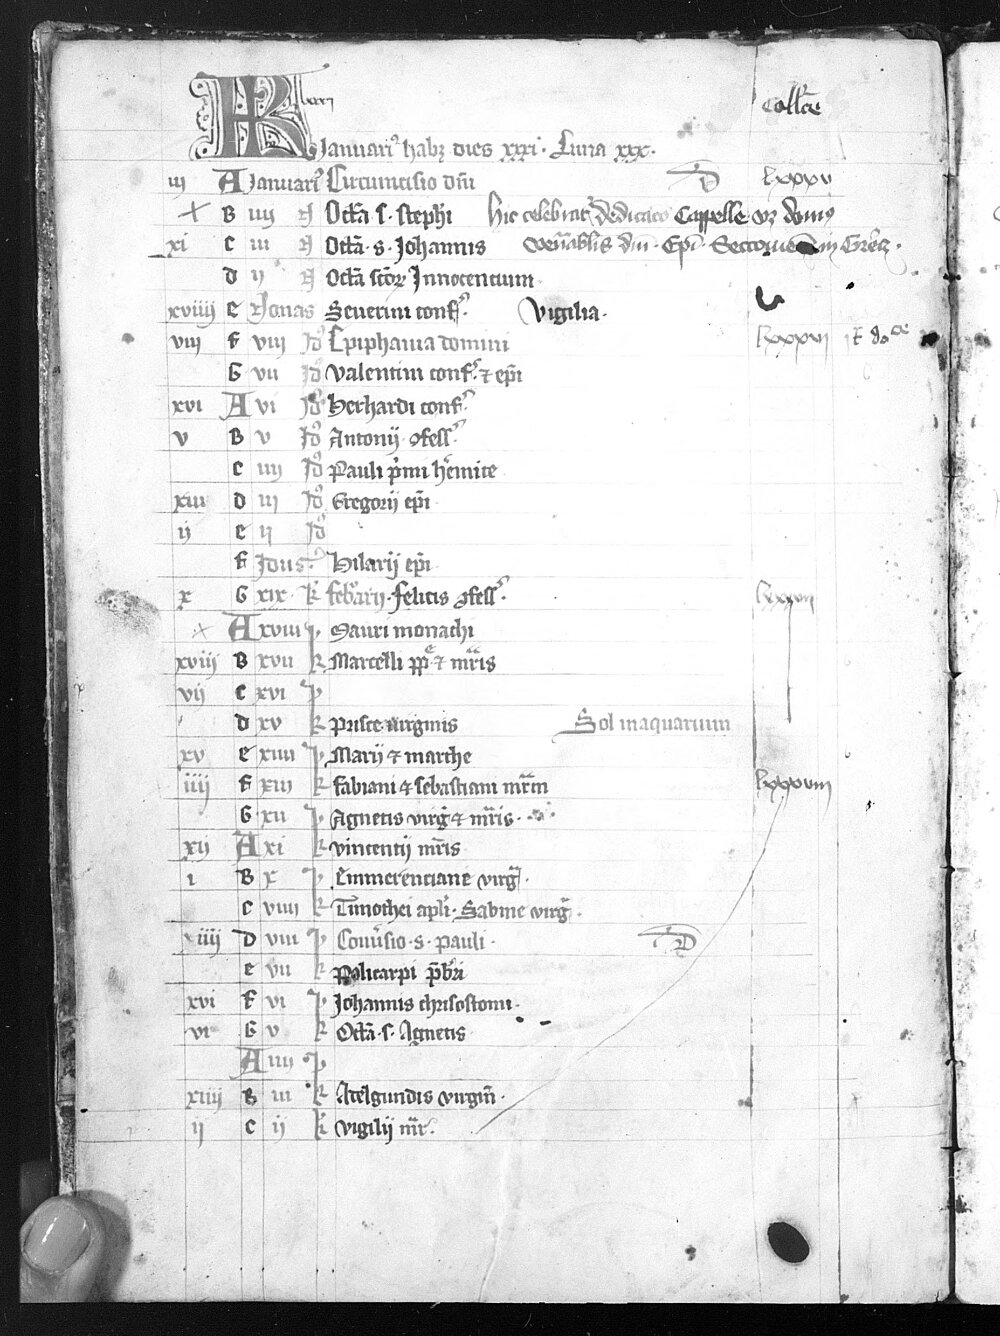 Collcē
KL Januariꝰ habꝫ dies xxxi · Luna xxx ·
iij A Januariꝰ Circumcisio dñi D lxxxv
B iiij Octā s. stephi Hic celebrat dedicatō Cappelle
xi C iii Octā · s · Johannis Epī
d ij Octā sctōꝝ Innocentium
xviiij e Nonas Seuerini confꝭ · Vigilia ·
viij f viij Jdꝰ Epiphania domini lxxxvj
G vii Jdꝰ Valentini confꝭ ⁊ epī
xvi A vi Jdꝰ Herhardi confꝭ
v B v Jdꝰ Antonij ꝯfessꝭ
c iiij Jdꝰ Pauli p̄mi h̄emite
xiii d iii Jdꝰ Gregorij epī
ij e ij Jdꝰ
f Jdus Hilarij epī
x G xix k̄ febrarij · felicis ꝯfessꝭ lxxxvij
A xviij Mauri monachi
xviij B xvii k Marcelli pp̄ ⁊ mr̄is
vij c xvi
d xv k prisce uirginis Sol in aquarium
xv e xiiij Marij ⁊ marthe
iiij f xiij k fabiani ⁊ sebastiani mr̄m lxxxviij
G xij Agnetis virḡ ⁊ mr̄is ·
xij A xi k vincentij mr̄is
i B x Emmerenciane virḡ ·
c viiij k Timothei apl̄i · Sabine virḡ ·
D viij Conūsio · s · pauli · D
e vii k Policarpi p̄bri
xvi f vi Johannis chrisostomi ·
vi G v k Octā · s · Agnetis
A iiij
xiiij B iii k Atelgundis virgiñ ·
ij c ij k vigilij mr̄ ·